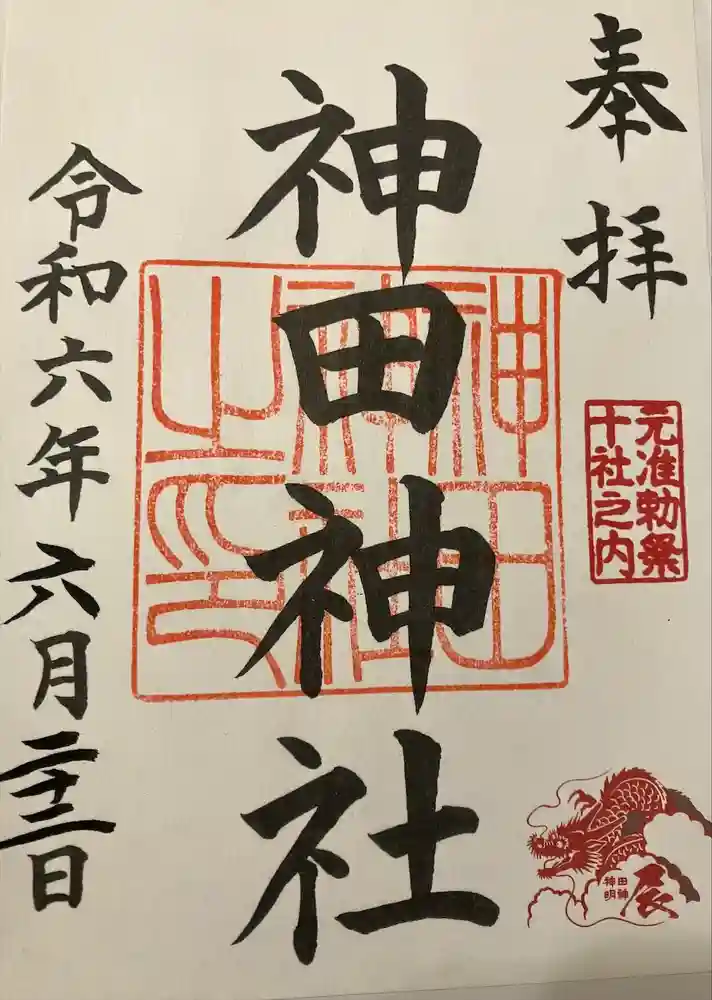 奉拝
元准勅祭
十社之内
神田神社
神田
神社
之印
神田
明神
辰
令和六年六月二十二日